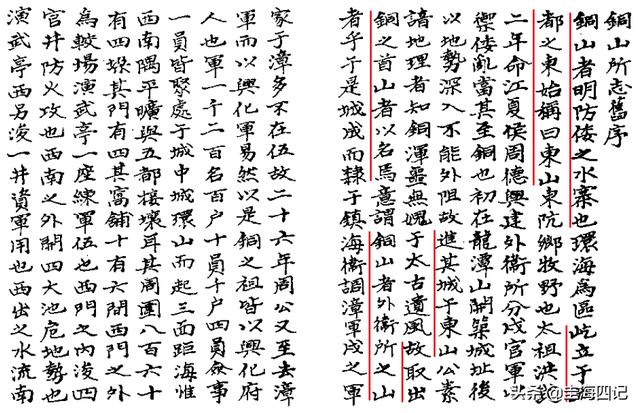 銅山所志舊序
銅山者明防倭之水寨也環海為區屹立于
都之東始稱曰東山東坑鄉牧野也太祖洪
二年命江夏侯周德興建外衛所分戍官軍以
禦倭亂當其至銅也初在龍潭山開築城址後
以地勢深入不能外阻故進其城于東山公素
諳地理者知銅渾噩無媿于太古遺風故取出
銅之首山者以名焉意謂銅山者外衛所之山
者乎于是城成而隸于鎮海衛調漳軍戍之軍
家于漳多不在伍故二十六年周公又至去漳
軍而以興化軍易然以是銅之祖皆以興化府
人也軍一千二百名百户十員千户四員僉事
一員皆聚處于城中城環山而起三面距海惟
西南隅平曠與五都接壤耳其周圍八百六十
有四垛其門有四其窩舖十有六間西門之外
為較場演武亭一座練軍伍也西門之內浚四
官井防火攻也西南之外開四大池危地勢也
演武亭西另浚一井資軍用也西出之水流南
头条@圭海四记